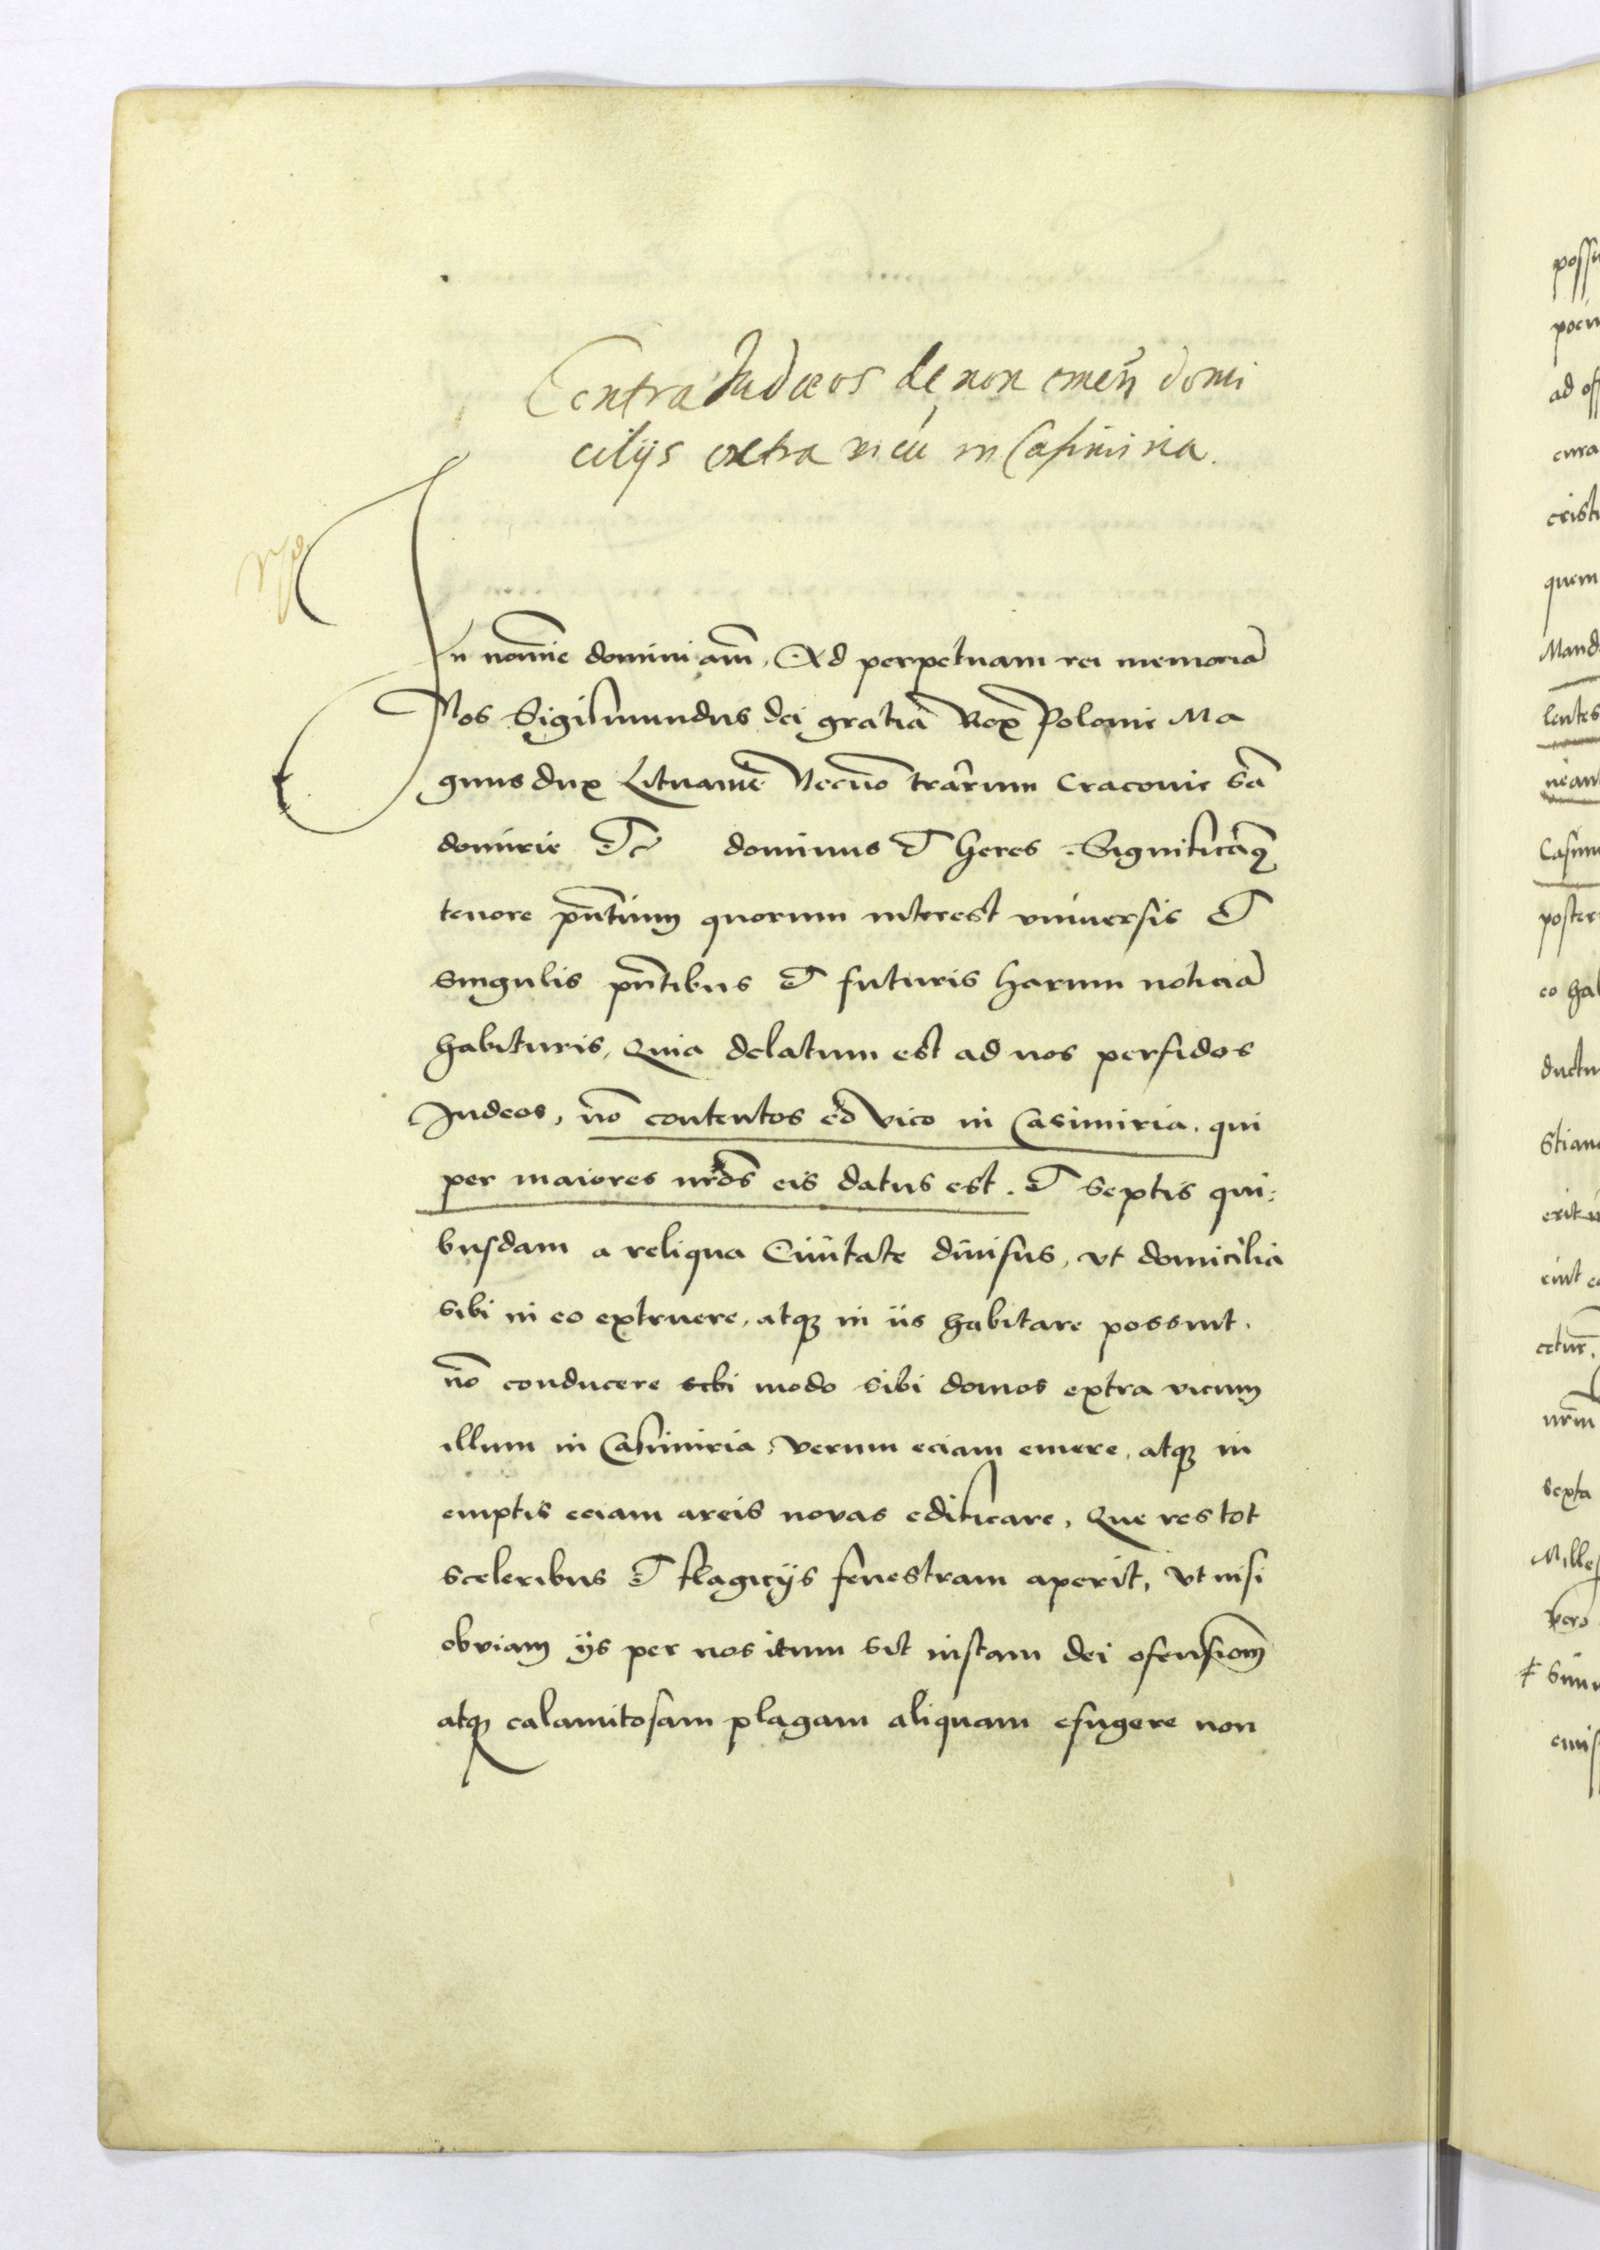 Contra Judæos de non emēn domi
cilijs extra vicū in Casimiria.
In nomīe domini amē. Ad perpetuam rei memoriā
Nos Sigismundus dei gratia Rex Polonie Ma
gnus dux Lituanie Necnō trārum Cracouie Sā
domirie Etc dominus Et heres. Significamꝯ
tenore pn̄tium quorum interest vniuersis Et
singulis pn̄tibus Et futuris harum noticiā
habituris, Quia delatum est ad nos perfidos
Judeos, nō contentos eō vico in Casimiria. qui
per maiores nrōs eis datus est. Et septis qui:
busdam a reliqua Ciuitate diuisus, vt domicilia
sibi in eo extruere, atqꝫ in iis habitare possint.
nō conducere modo sibi domos extra vicum
illum in Casimiria, verum eciam emere, atqꝫ in
emptis eciam areis novas edificare, Que res tot
sceleribus Et flagicijs fenestram aperit, vt nisi
obviam ijs per nos itum sit iustam dei ofensionē
atqꝫ calamitosam plagam aliquam efugere non
possu
ad off
cura
cristi
quem
Mand
lentes
Casim
poster
eo hab
ductu
Stian
nrm̄
sexta
Milles
vero